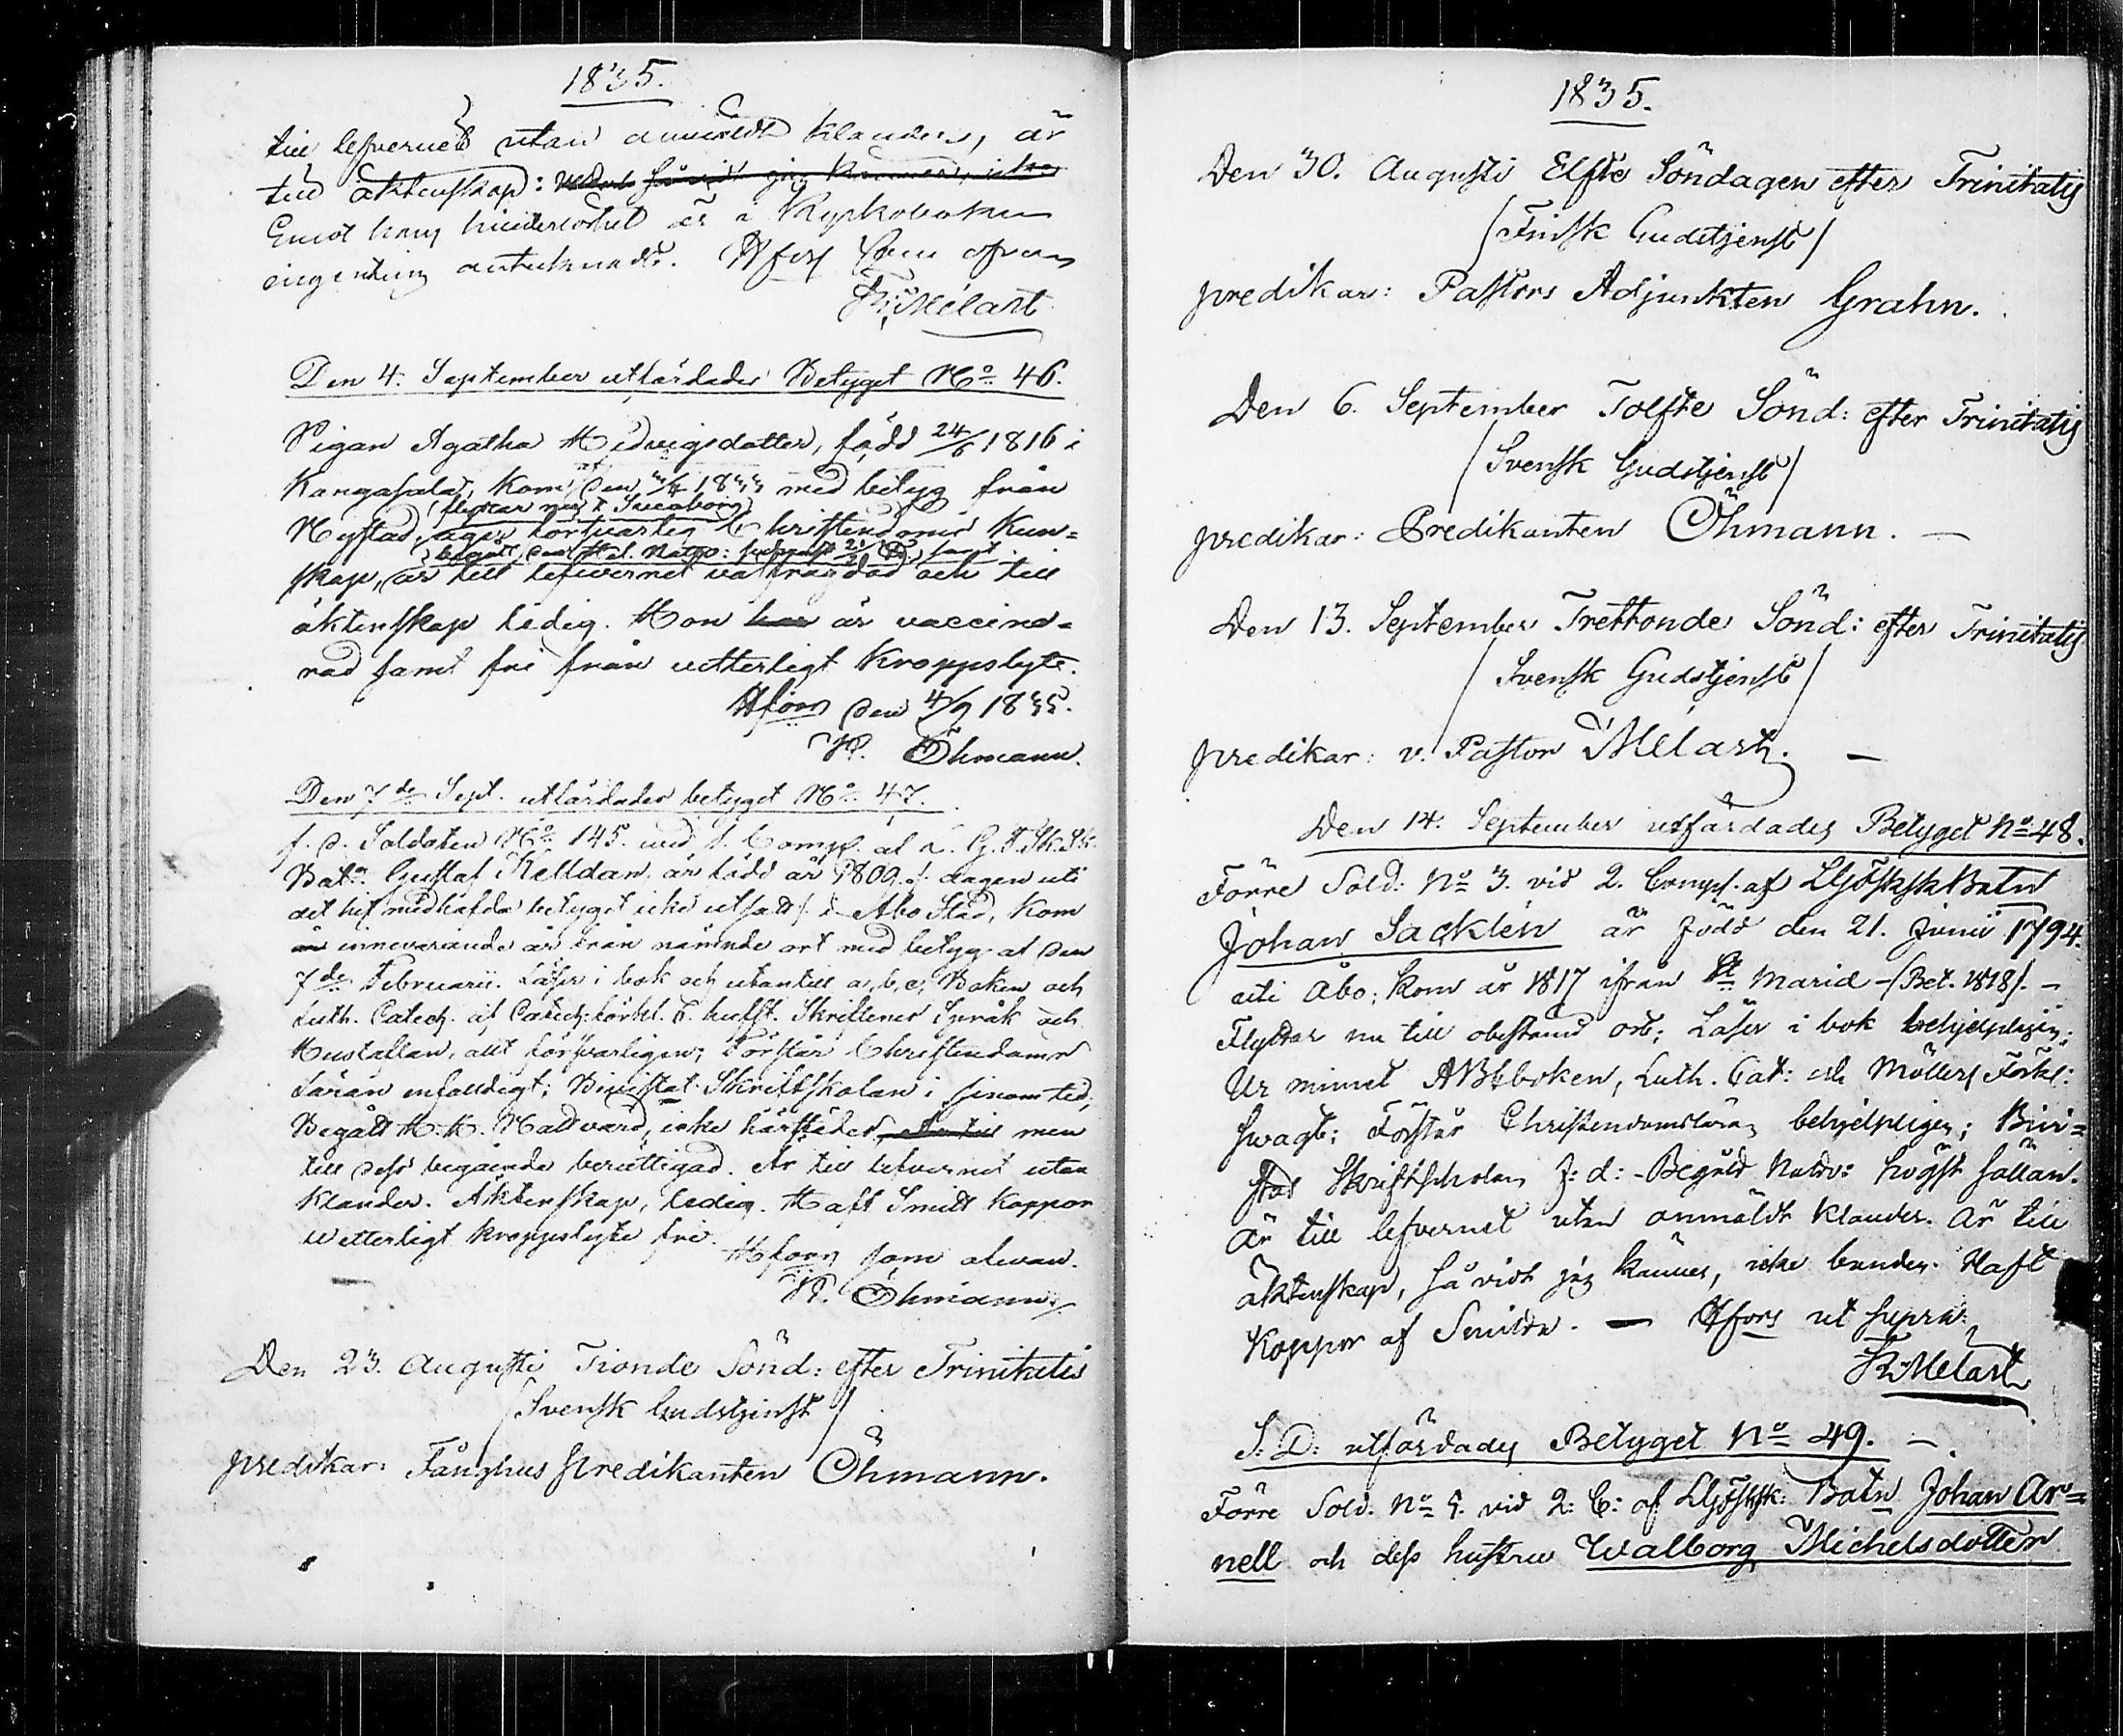 1835.
till lefvernet utan anmäldt klander, är
till äktenskap: så vidt jag känner, icke
Emot hans hinderlöshet är i Kyrkoboken
ingenting antecknadt. Hfors som ofvan
Fr: Melart
Den 4. September utfärdades Betyget No. 46.
Pigan Agatha Hedvigsdotter, född 24/6 1816 i
Kangasala, kom den 1833 med betyg från
flyttar nu t. Sveaborg
Nystad, äger försvarlig Christendoms kun=
begått samt
skap, är till lefvernet välfrägdad och till
äktenskap ledig. Hon har är vaccine=
rad samt fri från vetterligt kroppslyte.
Hfors den 4/9 1835.
W. Öhmann.
Den 7de Sept. utfärdades betyget No. 47.
f. d. Soldaten No. 145. wid 1. Comp. af L. G. F. Sk. Sk.
Batn. Gustaf Kelldan, är född år 1809 /: dagen uti
det hit medhafda betyget icke utsatt :/ i Åbo Stad, kom
innevarande år från nämnde ort med betyg af den
7de Februarii. Läser i bok och utantill a, b, c, Boken och
Luth. Catech. af Catech: förkl. t. hulft. Skriftenes Språk och
Hustaflan, allt försvarligen; Förstår Christendoms
Läran enfaldigt; Bivistat Skriftskolan i sinom tid;
Begått H. H. Nattvard, icke härstädes, men
till dess begående berättigad. Är till lefvernet utan
klander. Äktenskap, ledig. Haft Smitt koppor
Wetterligt kroppslyte fri.
Hfors som ofwan.
W. Öhmann.
Den 23. Augusti Tionde Sönd: efter Trinitatis
/Svensk Gudstjenst/
predikar: Fånghus predikanten Öhmann.
1835.
Den 30. Augusti Elfte Söndagen efter Trinitatis
/Finsk Gudstjenst/
predikar: Pastors Adjunkten Grahn.
Den 6. September Tolfte Sönd: efter Trinitatis
/Svensk Gudstjenst/
predikar: Predikanten Öhmann. —
Den 13. September Trettonde Sönd: efter Trinitatis
/Svensk Gudstjenst/
predikar: v. Pastor Melart. —
Den 14. September utfärdades Betyget No 48.
Förre Sold: No 3. vid 2. Comp. af LGFSkSkBatn
Johan Sacklén är född den 21. Junii 1794.
uti Åbo; kom år 1817 ifrån St Marié (Bet. 1818). —
Flyttar nu till obestämd ort; Läser i bok behjelpligen;
Ur minnet ABCboken, Luth. Cat: och Möllers Förkl:
swagt; Förstår Christendomsläran behjelpligen; Bivi=
stat Skriftscholan s: d: - Begådt Nattv: högst sällan.
Är till lefvernet utan anmäldt klander. Är till
äktenskap, så vidt jag känner, icke bunden. Haft
koppor af Smitta. — Hfors ut supra.
Fr Melart
S: D: utfärdades Betyget No 49. —
Förre Sold. No 9. vid 2: C: af LGFSkSk: Batn Johan Ar=
nell och dess hustru Walborg Michelsdotter